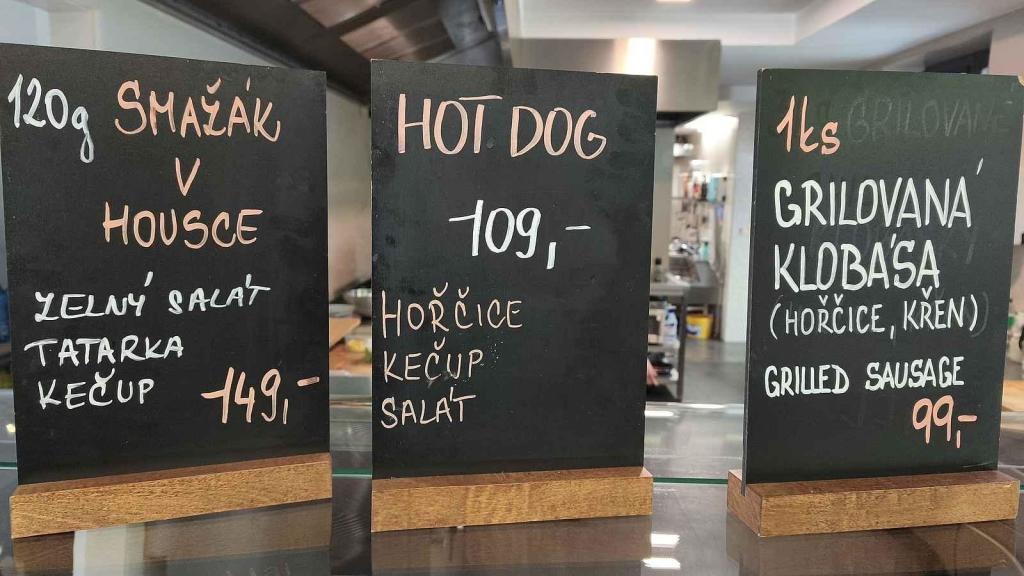 120g SMAŽÁK
V
HOUSCE
ZELNÝ SALÁT
TATARKA
KEČUP 149,-
HOT DOG
109,-
HOŘČICE
KEČUP
SALÁT
1ks GRILOVANÉ
GRILOVANÁ
KLOBÁSA
(HOŘČICE, KŘEN)
GRILLED SAUSAGE
99,-